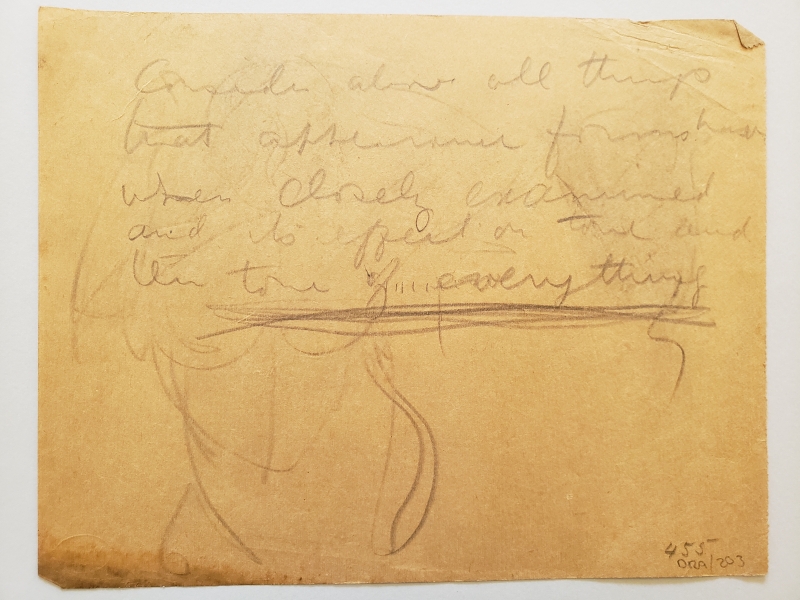 Consider above all things
that appearance forms have
when closely examined
and its effect on tone and
the tone of everything
455
DRA/203